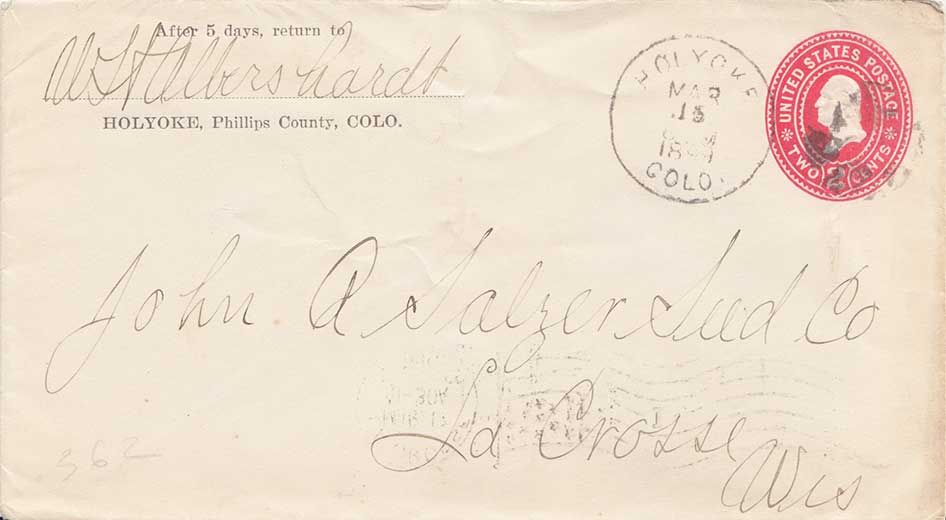 After 5 days, return to
HOLYOKE, Phillips County, COLO.
HOLYOKE
MAR
15
COLO.
UNITED STATES POSTAGE
TWO 2 CENTS
John A Salzer Seed Co
La Crosse
Wis
362